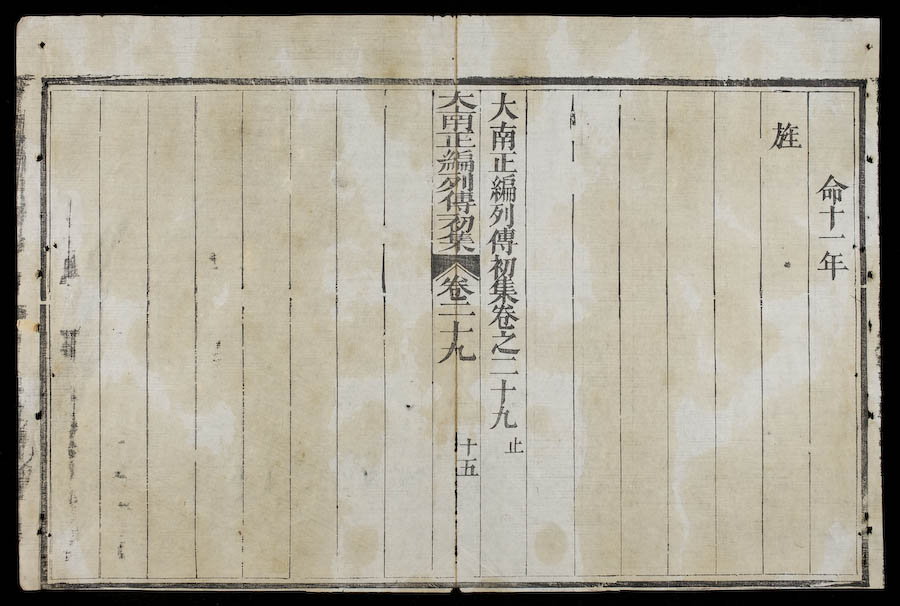 命十一年
旌
大南正編列傳初集卷之二十九 止
大南正編列傳初集 卷二十九 十五